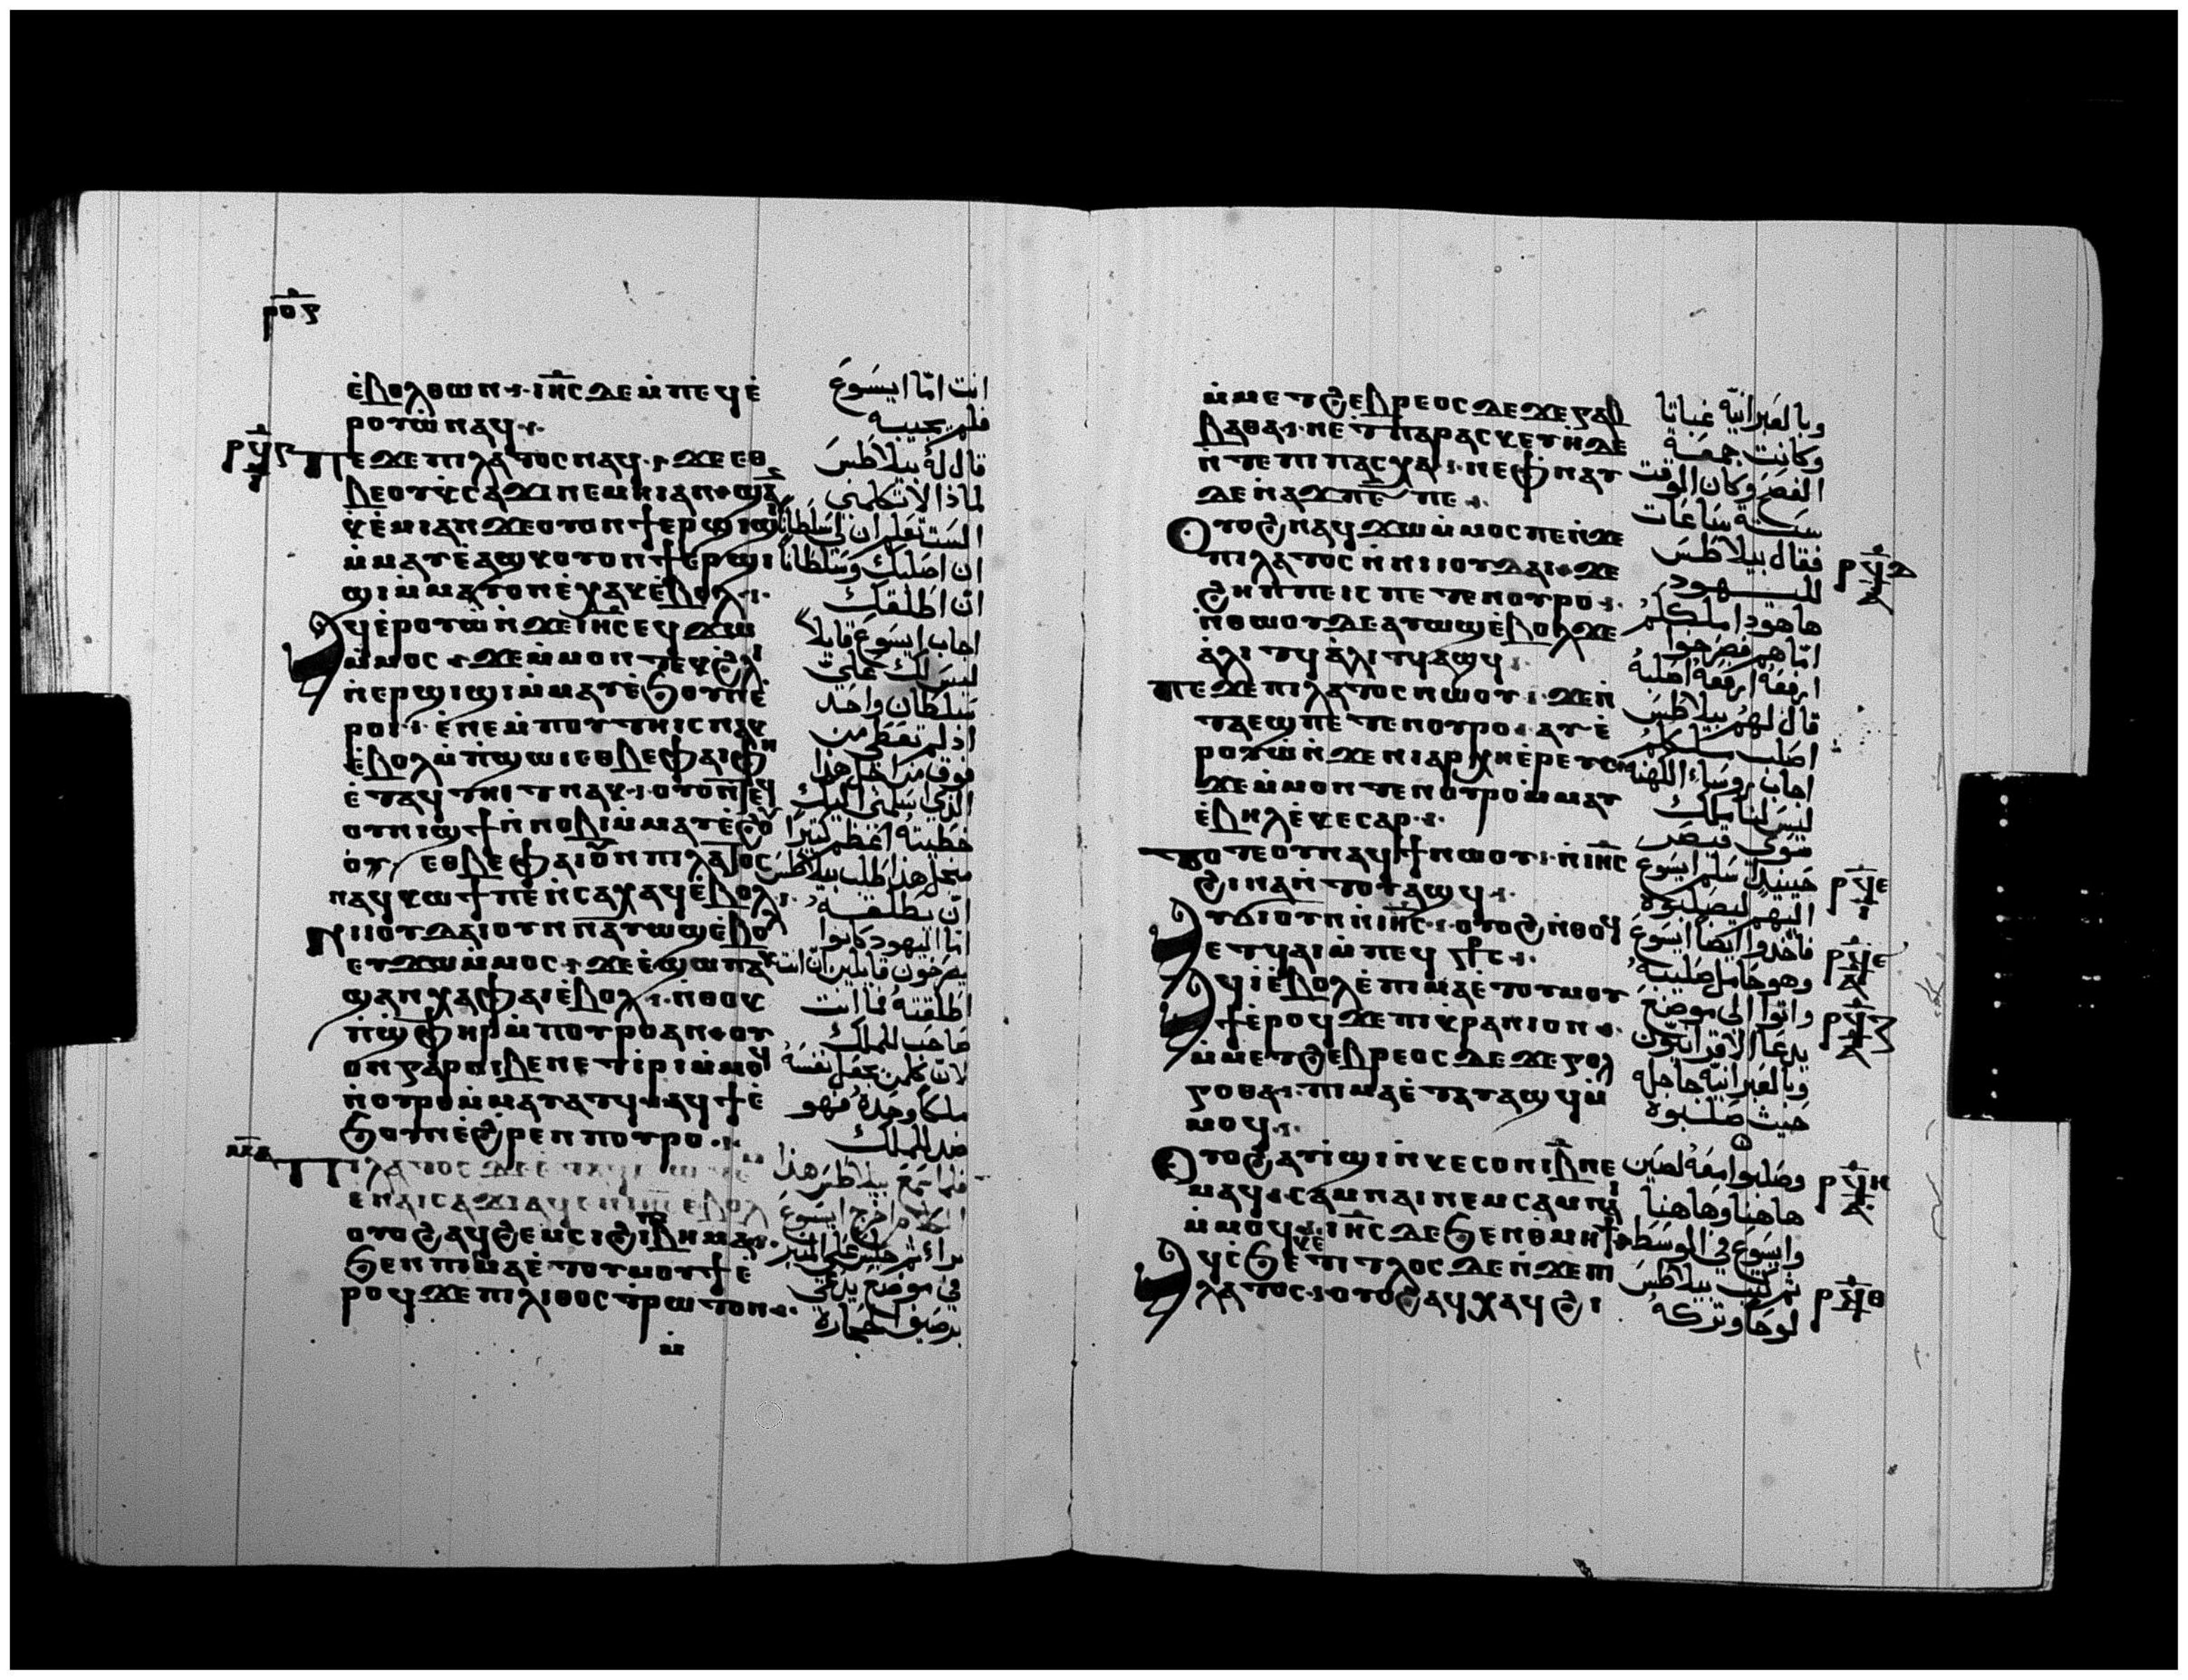 ⲣⲟⲋ
ⲉ̀ⲃⲟⲗⲑⲱⲛ ⲓⲏ̅ⲥ ⲇⲉ ⲙ̀ⲡⲉϥⲉ̀
ⲣⲟⲩⲱ̀ ⲛⲁϥ
ⲡⲉϫⲉ ⲡⲓⲗⲁⲧⲟⲥ ⲛⲁϥ ϫⲉ ⲉⲑ
ⲃⲉⲟⲩ ⲕ̀ⲥⲁϫⲓ ⲛⲉⲙⲏⲓ ⲁⲛ
ⲕⲉ̀ⲙⲓ ⲁⲛ ϫⲉ ⲟⲩⲟⲛϯ ⲉⲣϣⲓϣⲓ
ⲙ̀ⲙⲁⲩ ⲉ̀ⲁϣⲕ ⲟⲩⲟⲛϯ ⲉⲣϣⲓ
ϣⲓ ⲙ̀ⲙⲁⲩ ⲟⲛ ⲉ̀ⲭⲁⲕ ⲉ̀ⲃⲟⲗ
ⲁϥⲉ̀ⲣⲟⲩⲱ̀ ⲛ̀ϫⲉ ⲓⲏ̅ⲥ ⲉϥϫⲱ
ⲙ̀ⲙⲟⲥ ϫⲉ ⲙ̀ⲙⲟⲛⲧⲉⲕ ϩ̀ⲗⲓ
ⲛ̀ⲉⲣϣⲓϣⲓ ⲙ̀ⲙⲁⲩ ⲉ̀ϧⲟⲩⲛ ⲉ̀
ⲣⲟⲓ ⲉ̀ⲛⲉ ⲙ̀ⲡⲟⲩⲧⲏⲓⲥ ⲛⲁⲕ
ⲉ̀ⲃⲟⲗ ⲙ̀ⲡ̀ϣⲱⲓ ⲉⲑⲃⲉ ⲫⲁⲓ ⲫⲏ
ⲉ̀ⲧⲁϥⲧⲏⲓⲧ ⲛⲁⲕ ⲟⲩⲟⲛⲧⲉϥ
ⲟⲩⲛⲓϣϯ ⲛ̀ⲛⲟⲃⲓ ⲙ̀ⲙⲁⲩ ⲉ̀ϩⲟ
ⲟ̀ⲩ ⲉⲑⲃⲉ ⲫⲁⲓ ⲟⲩⲛ ⲡⲓⲗⲁⲧⲟⲥ
ⲛⲁϥⲕⲱϯ ⲡⲉ ⲛ̀ⲥⲁ ⲭⲁϥ ⲉ̀ⲃⲟⲗ
ⲛⲓⲓⲟⲩⲇⲁⲓ ⲟⲩⲛ ⲛⲁⲩⲱϣ ⲉ̀ⲃⲟⲗ
ⲉⲩϫⲱ ⲙ̀ⲙⲟⲥ ϫⲉ ⲉ̀ϣⲱⲡ ⲁⲕ
ϣⲁⲛⲭⲁ ⲫⲁⲓ ⲉ̀ⲃⲟⲗ ⲛ̀ⲑⲟⲕ
ⲡ̀ϣⲫⲏⲣ ⲙ̀ⲡⲟⲩⲣⲟ ⲁⲛ ⲟⲩ
ⲟⲛ ⲅⲁⲣ ⲛⲓⲃⲉⲛ ⲉⲧⲓⲣⲓ ⲙ̀ⲙⲟϥ
ⲛ̀ⲟⲩⲣⲟ ⲙ̀ⲙⲁⲩⲁⲧϥ ⲁϥϯ ⲉ̀
ϧⲟⲩⲛ ⲉ̀ϩⲣⲉⲛ ⲡⲟⲩⲣⲟ
ⲡⲓⲗⲁⲧⲟⲥ ⲇⲉ
ⲉⲛⲁⲓⲥⲁϫⲓ ⲁϥⲉⲛ ⲓⲏ̅ⲥ ⲉⲃⲟⲗ
ⲟⲩⲟϩ ⲁϥϩⲉⲙⲥⲓ ϩⲓ ⲡⲓⲃⲏⲙⲁ
ϧⲉⲛ ⲡⲓⲙⲁ ⲉ̀ⲧⲟⲩⲙⲟⲩϯ ⲉ̀
ⲣⲟϥ ϫⲉ ⲡⲓⲗⲓⲑⲟⲥⲧⲣⲱⲧⲟⲛ
انت امّا ايسوع
فلم يجيبه
قال له بيلاطس
لماذا لا تكلمني
الست تعلم ان لي سلطانا
ان اصلبك وسلطانا
ان اطلقك
اجاب ايسوع قايلا
ليس لك علي
سلطان واحد
اذ لم تعطى من
فوق من اجل هذا
الذي سلمني اليك
خطيته اعظم كثيرا
من اجل هذا طلب بيلاطس
ان يطلقه
امّا اليهود كانوا
يصرخون قايلين ان انت
اطلقته فما انت
صاحب للملك
لان كلمن يجعل نفسه
ملكا وحده فهو
ضد للملك
فلما سمع بيلاطس هذا
الكلام اخرج ايسوع
براء ثم جلس على المنبر
في موضع يدعى
برصيف الحجارة
ⲙ̀ⲙⲉⲧϩⲉⲃⲣⲉⲟⲥ ⲇⲉ ϫⲉ ⲅⲁⲃ
ⲃⲁⲑⲁ ⲛⲉ ⲧ̀ⲡⲁⲣⲁⲥⲕⲉⲩⲏ ⲇⲉ
ⲛ̀ⲧⲉ ⲡⲓⲡⲁⲥⲭⲁ ⲛⲉ ⲫ̀ⲛⲁⲩ
ⲇⲉ ⲛ̀ⲁϫⲡ ⲋ̅ ⲡⲉ
ⲟⲩⲟϩ ⲛⲁϥϫⲱ ⲙ̀ⲙⲟⲥ ⲡⲉ ⲛ̀ϫⲉ
ⲡⲓⲗⲁⲧⲟⲥ ⲛ̀ⲛⲓⲓⲟⲩⲇⲁⲓ ϫⲉ
ϩⲏⲡⲡⲉ ⲓⲥ ⲡⲉⲧⲉⲛⲟⲩⲣⲟ
ⲛ̀ⲑⲱⲟⲩ ⲇⲉ ⲁⲩⲱϣ ⲉ̀ⲃⲟⲗ ϫⲉ
ⲁ̀ⲗⲓⲧϥ ⲁ̀ⲗⲓⲧϥ ⲁϣϥ
ⲡⲉϫⲉ ⲡⲓⲗⲁⲧⲟⲥ ⲛⲱⲟⲩ ϫⲉ ⲛ̀
ⲧⲁⲉϣ ⲡⲉⲧⲉⲛⲟⲩⲣⲟ ⲁⲩⲉ̀
ⲣⲟⲩⲱ̀ ⲛ̀ϫⲉ ⲛⲓⲁⲣⲭⲏⲉ̀ⲣⲉⲩⲥ
ϫⲉ ⲙ̀ⲙⲟⲛⲧⲉⲛ ⲟⲩⲣⲟ ⲙ̀ⲙⲁⲩ
ⲉ̀ⲃⲏⲗ ⲉ̀ⲕⲉⲥⲁⲣ
ⲧⲟⲧⲉ ⲟⲩⲛ ⲁϥϯ ⲛⲱⲟⲩ ⲛ̀ⲓⲏ̅ⲥ
ϩⲓⲛⲁ ⲛ̀ⲧⲟⲩⲁϣϥ
ⲁⲩϭⲓ ⲟⲩⲛ ⲛ̀ⲓⲏ̅ⲥ ⲟⲩⲟϩ ⲛ̀ⲑⲟϥ
ⲉϥϥⲁⲓ ⲙ̀ⲡⲉϥ
ⲁϥⲓ̀ ⲉ̀ⲃⲟⲗ ⲉ̀ⲡⲓⲙⲁ ⲉ̀ⲧⲟⲩⲙⲟⲩ
ϯ ⲉ̀ⲣⲟϥ ϫⲉ ⲡⲓⲕⲣⲁⲛⲓⲟⲛ
ⲙ̀ⲙⲉⲧϩⲉⲃⲣⲉⲟⲥ ⲇⲉ ϫⲉ ⲅⲟⲗ
ⲅⲟⲑⲁ ⲡⲓⲙⲁ ⲉ̀ⲧⲁⲩⲁϣϥ ⲙ̀
ⲙⲟϥ
ⲟⲩⲟϩ ⲁⲩⲓ̀ϣⲓ ⲛ̀ⲕⲉⲥⲟⲛⲓ ⲃ̅ ⲛⲉ
ⲙⲁϥ ⲥⲁⲙⲛⲁⲓ ⲛⲉⲙ ⲥⲁⲙⲛⲁⲓ
ⲙ̀ⲙⲟϥ ⲓⲏ̅ⲥ ⲇⲉ ϧⲉⲛ ⲑ̀ⲙⲏϯ
ⲁϥⲥ̀ϧⲉ ⲕⲉⲧⲓⲧⲗⲟⲥ ⲇⲉ ⲛ̀ϫⲉ ⲡⲓ
ⲗⲁⲧⲟⲥ ⲟⲩⲟϩ ⲁϥⲭⲁϥ ϩⲓ
وبالعبرانيّه غباتا
وكانت جمعة
الفصح وكان الوقت
ستة ساعات
فقال بيلاطس
لليهود
هاهودا ملككم
امّا هم فصرخوا
ارفعه ارفعه اصلبه
قال لهم بيلاطس
اصلب ملككم
اجاب روساء الكهنه
ليس لنا ملك
سوى قيصر
حينيذ اسلم ايسوع
اليهم ليصلبوه
فاخذوا ايضا ايسوع
وهو حامل صليبه
واتوا الى موضع
يدعا الاقرانيّون
وبالعبرانيّه جاجله
حيث صلبوه
وصلبوا معه لصين
هاهنا وهاهنا
وايسوع في الوسط
ثم كتب بيلاطس
لوحا وتركه